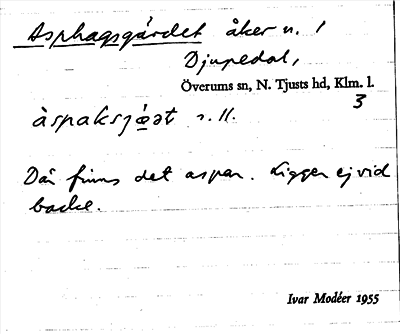 Asphagsgärdet åker n. 1
Djupedal,
Överums sn, N. Tjusts hd, Klm. l.
3
àspaksjæ̣ət s. ll.
Där finns det aspar. Ligger ej vid
backe.
Ivar Modéer 1955